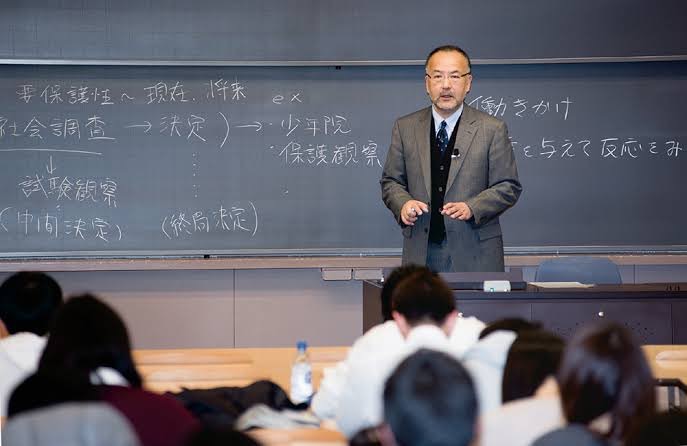 要保護性~現在、将来 ex
社会調査→決定)→・少年院
・保護観察
↓
試験観察
(中間決定) (終局決定)
働きかけ
を与えて反応をみ